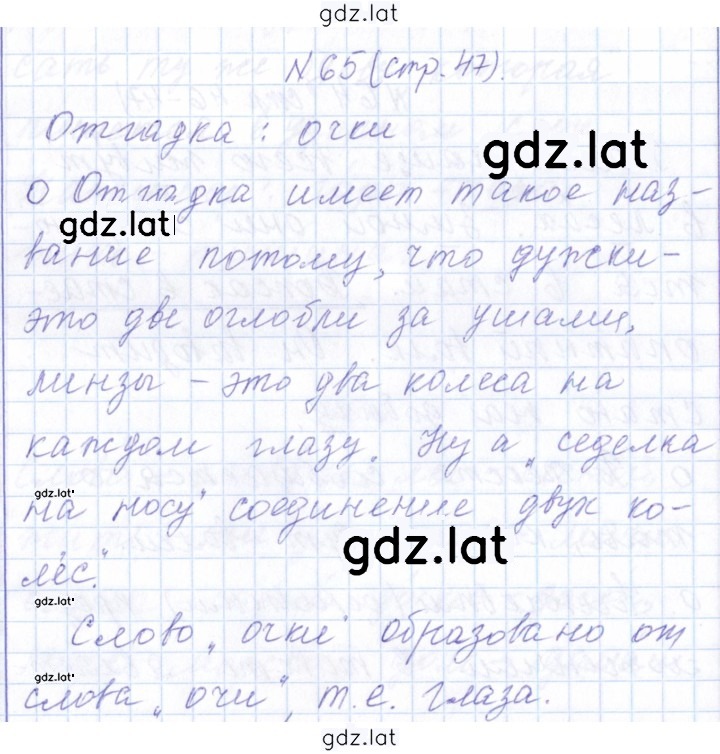 gdz.lat
N 65 (стр. 47).
Отгадка : очки
gdz.lat
О Отгадка имеет такое наз-
gdz.lat
вание потому, что дужки-
это две оглобли за ушами,
линзы - это два колеса на
каждом глазу. Ну а „седелка
gdz.lat
на носу" соединение двух ко-
gdz.lat
лёс."
gdz.lat
Слово „очки" образовано от
gdz.lat
слова „очи", т.е. глаза.
gdz.lat